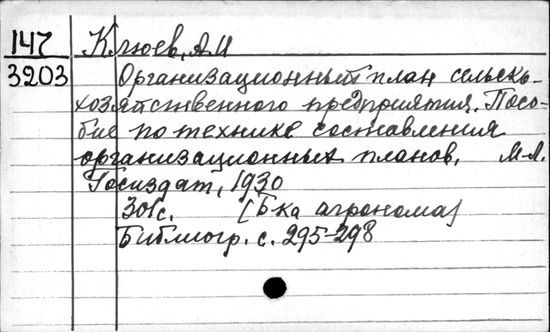 147 Клюев, А.И
3203 Организационный план сельско-
хозяйственного предприятия. Посо-
бие по технике составления
организационных планов. М-Л.
Госиздат, 1930
301с. [Б-ка агронома]
Библиогр. с. 295-298